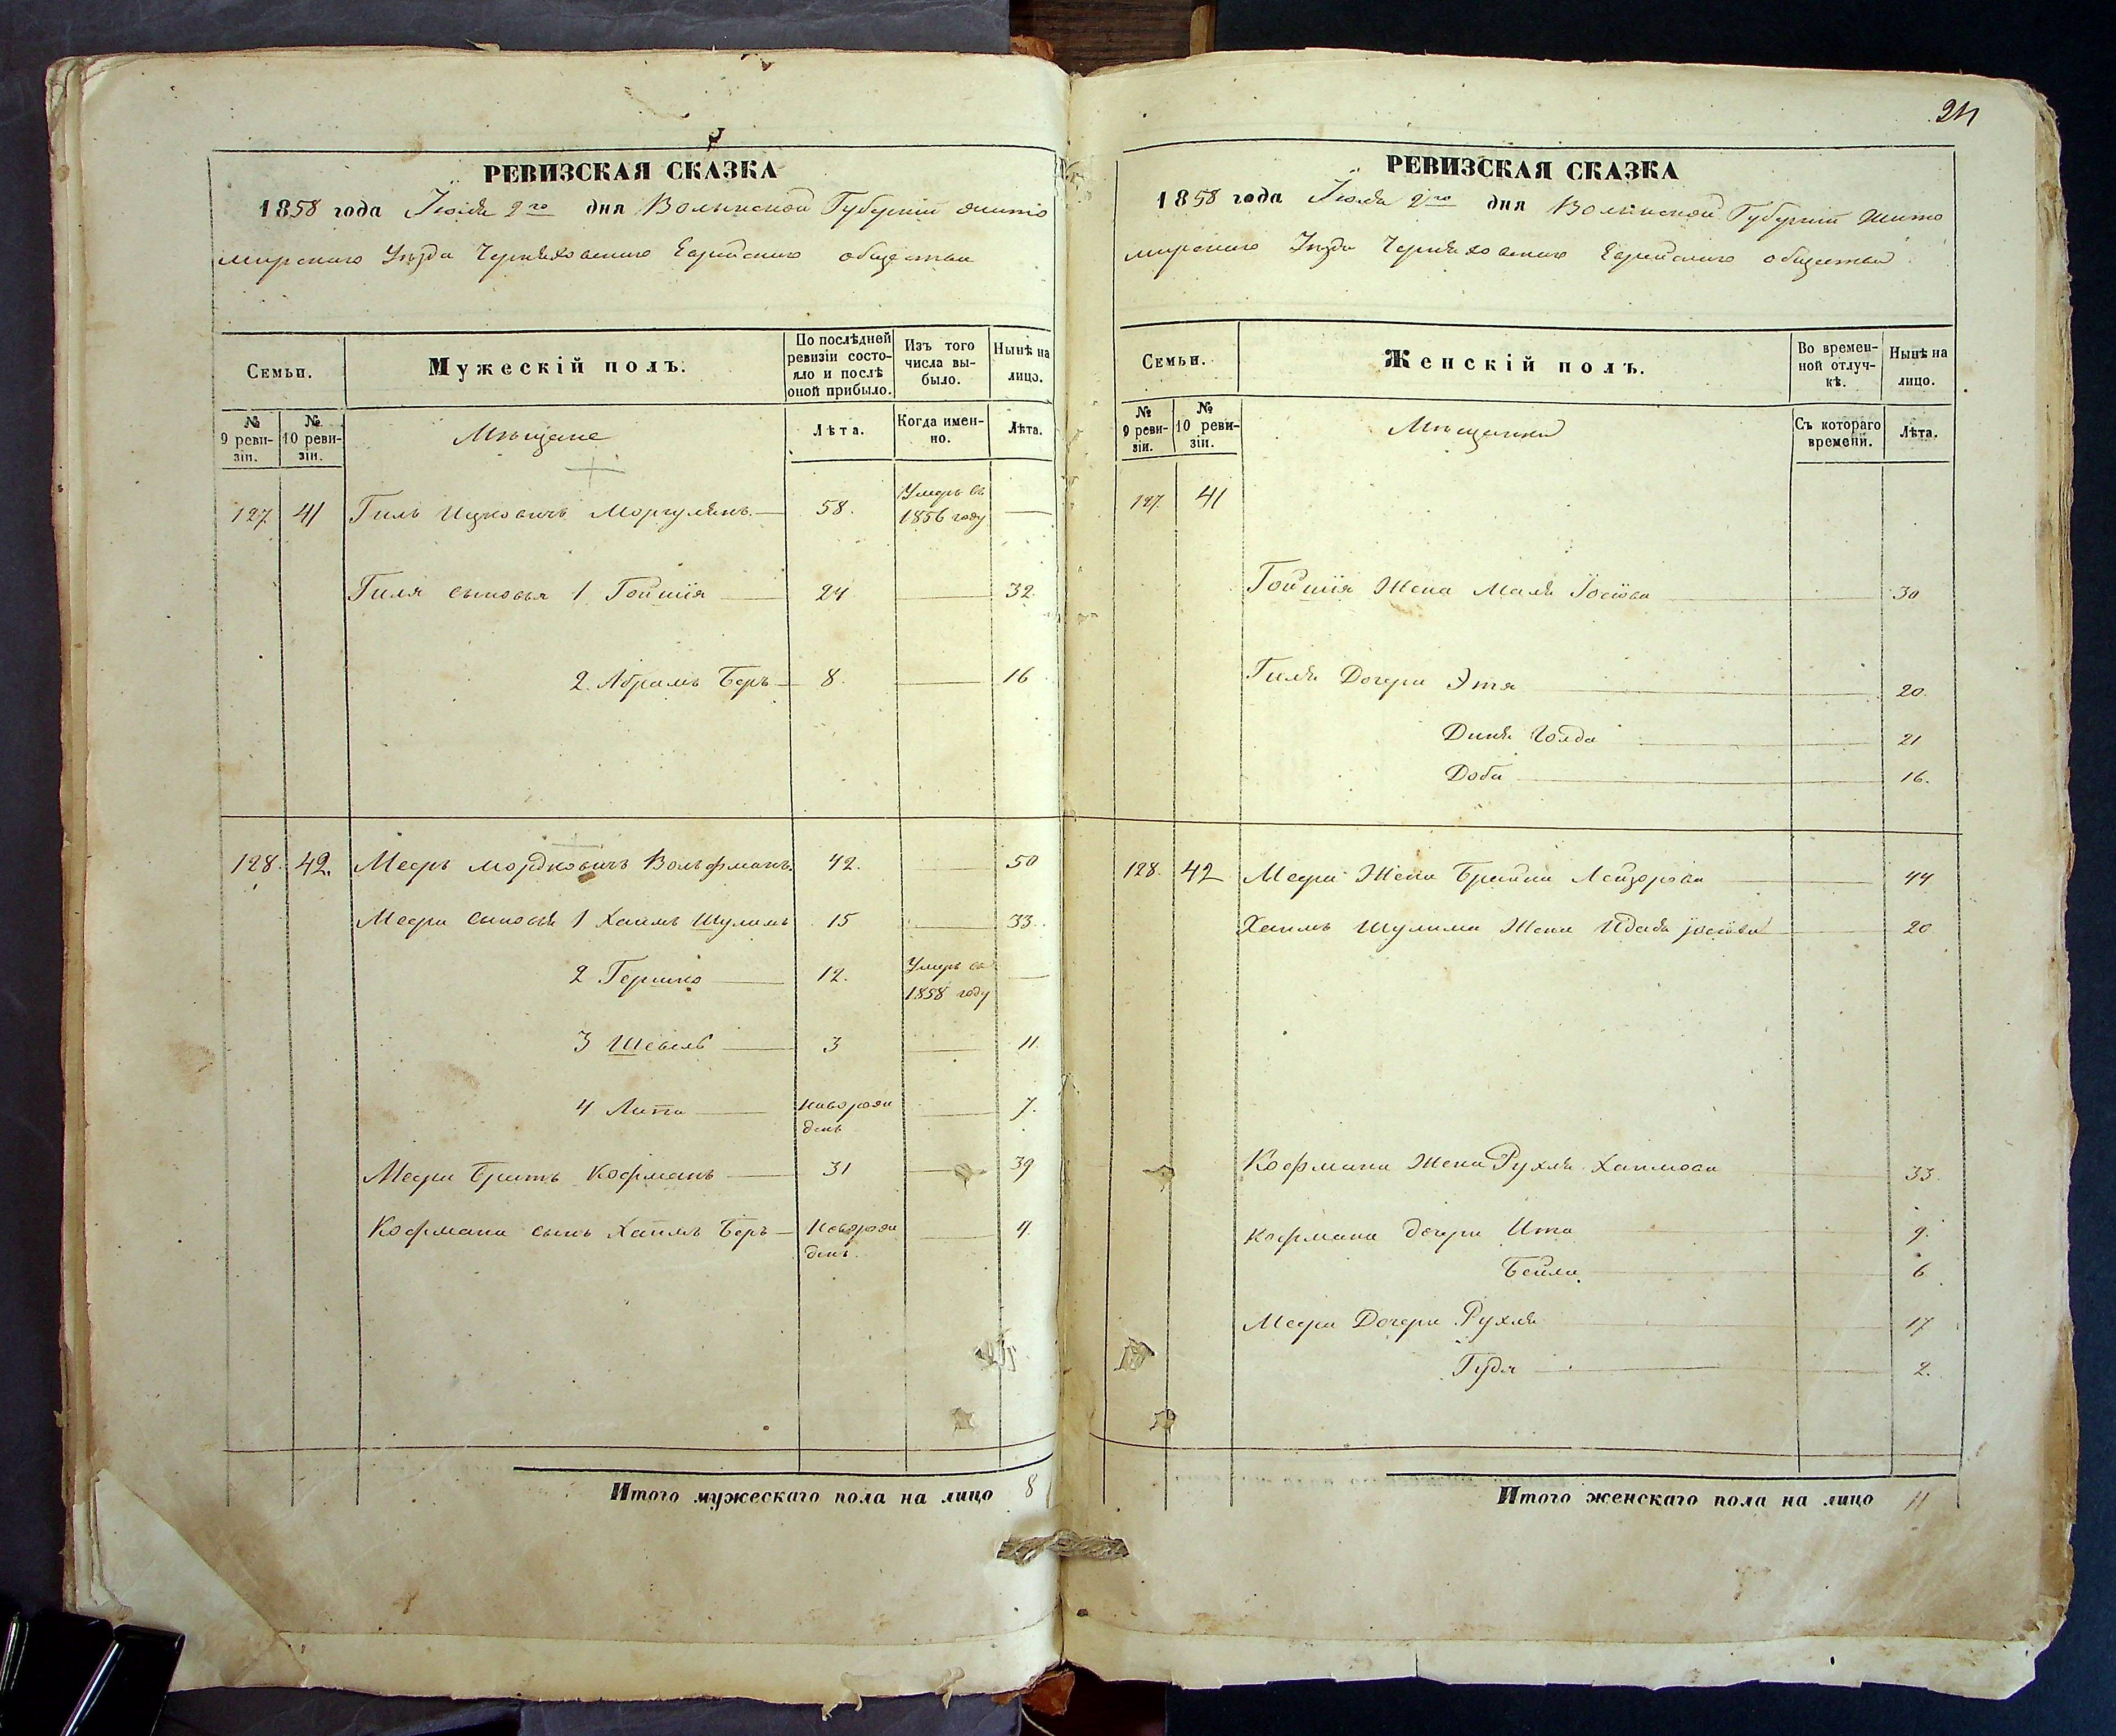 РЕВИЗСКАЯ СКАЗКА
1858 года Іюля 2го дня Волынской Губерніи Жито
мирскаго Уѣзда Черняховскаго Еврейскаго общества
Семьи.
Мужескій полъ.
По послѣдней ревизіи состояло и послѣ оной прибыло.
Изъ того числа выбыло.
Нынѣ на лицо.
№ 9 ревизіи.
№ 10 ревизіи.
Мѣщане
Лѣта.
Когда именно.
Лѣта.
127 41 Гиль Ицковичъ Моргулянъ 58. Умеръ въ 1856 году
Гиля сыновья 1 Гойшія 24 32.
2. Абрамъ Беръ 8. 16
128. 42. Мееръ Мордковичъ Вольфманъ. 42. 50
Меера сыновья 1 Хаимъ Шулимъ 15 33.
2 Гершко 12. Умеръ въ 1858 году
3 Шевель 3 11.
4 Липа Новорожденъ 7.
Меера братъ Кофманъ 31 39
Кофмана сынъ Хаимъ Беръ Новорожденъ. 4.
Итого мужескаго пола на лицо 8
24
РЕВИЗСКАЯ СКАЗКА
1858 года Іюля 2го дня Волынской Губерніи Жито
мирскаго Уѣзда Черняховскаго Еврейскаго общества
Семьи.
Женскій полъ.
Во временной отлучкѣ.
Нынѣ на лицо.
№ 9 ревизіи.
№ 10 ревизіи.
Мѣщанки
Съ котораго времени.
Лѣта.
127. 41
Гойшія Жена Маля Іосіова 30
Гиля Дочери Этя 20.
Диня Голда 21
Доба 16.
128. 42 Меера Жена Брайна Лейзорова 44
Хаимъ Шулима Жена Іосіова 20
Кофмана Жена Рухля Хаимова 33.
Кофмана дочери Ита 9.
Бейла 6
Меера Дочери Рухля 17
Гудя 2.
Итого женскаго пола на лицо 11